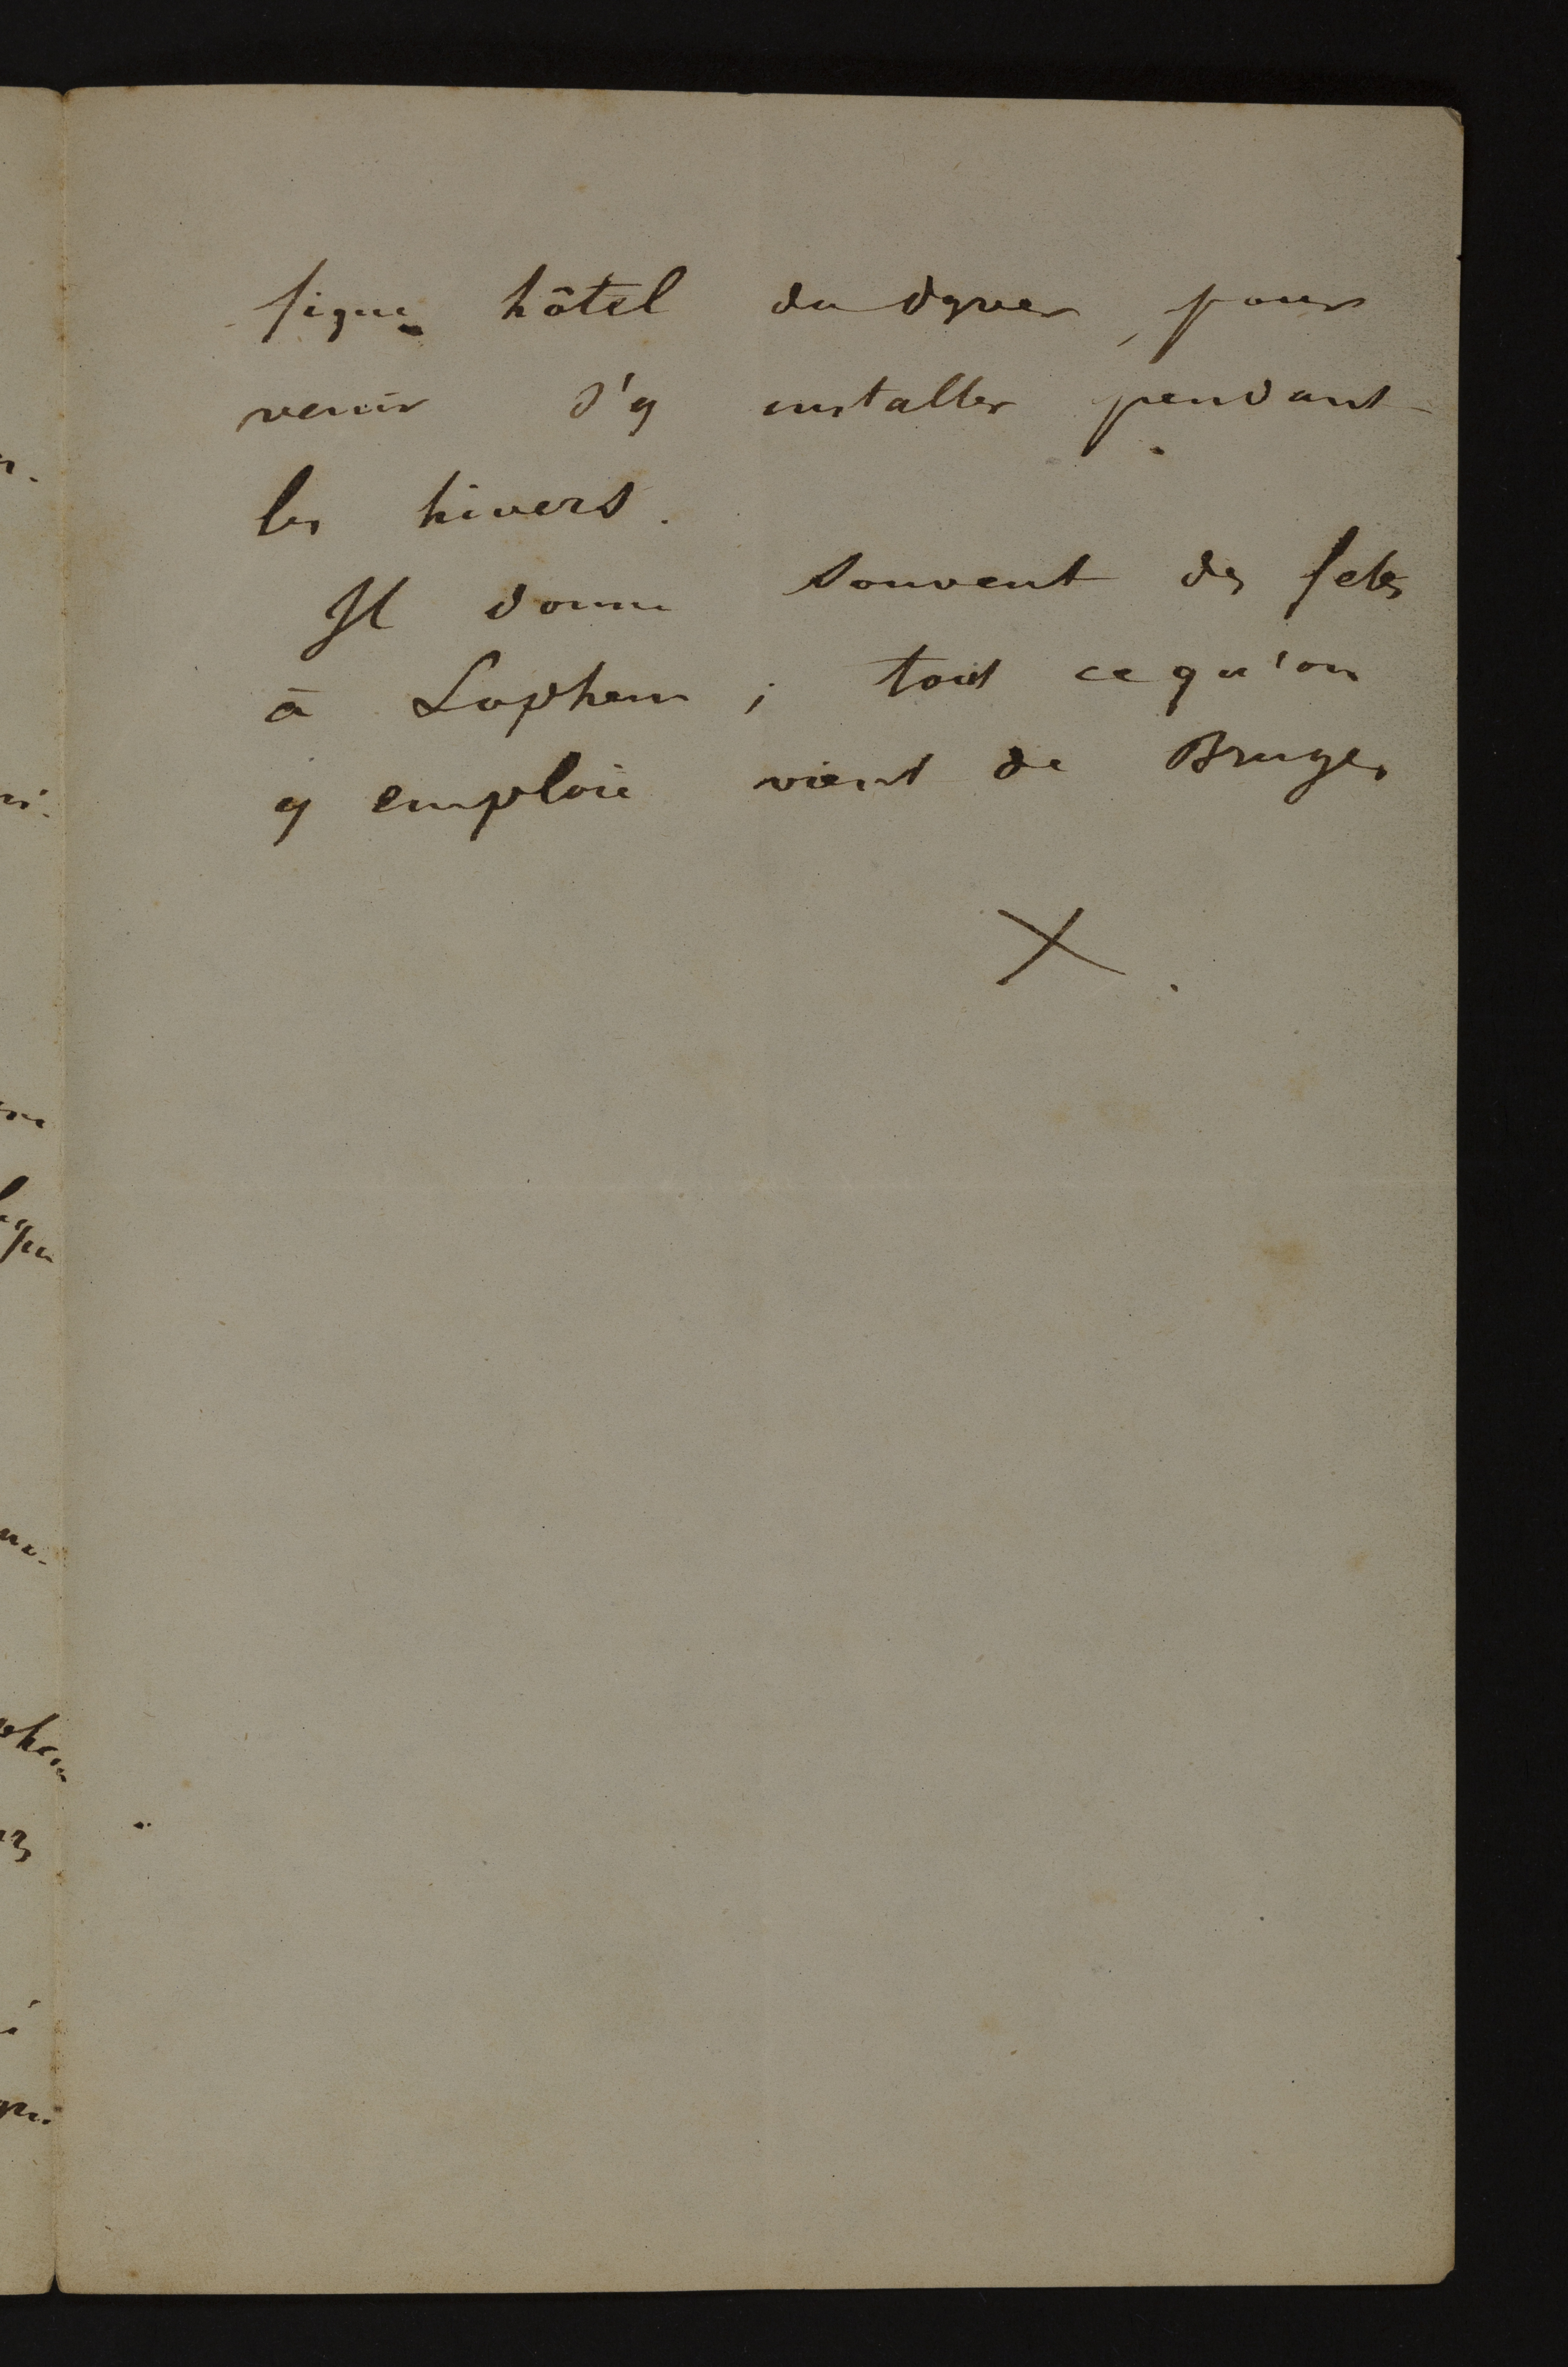 fique hôtel du dyver, pour
venir s'y installer pendant
les hivers.
Il donne souvent des fetes
à Lophem ; tout ce qu'on
y emploie vient de Bruges
X.